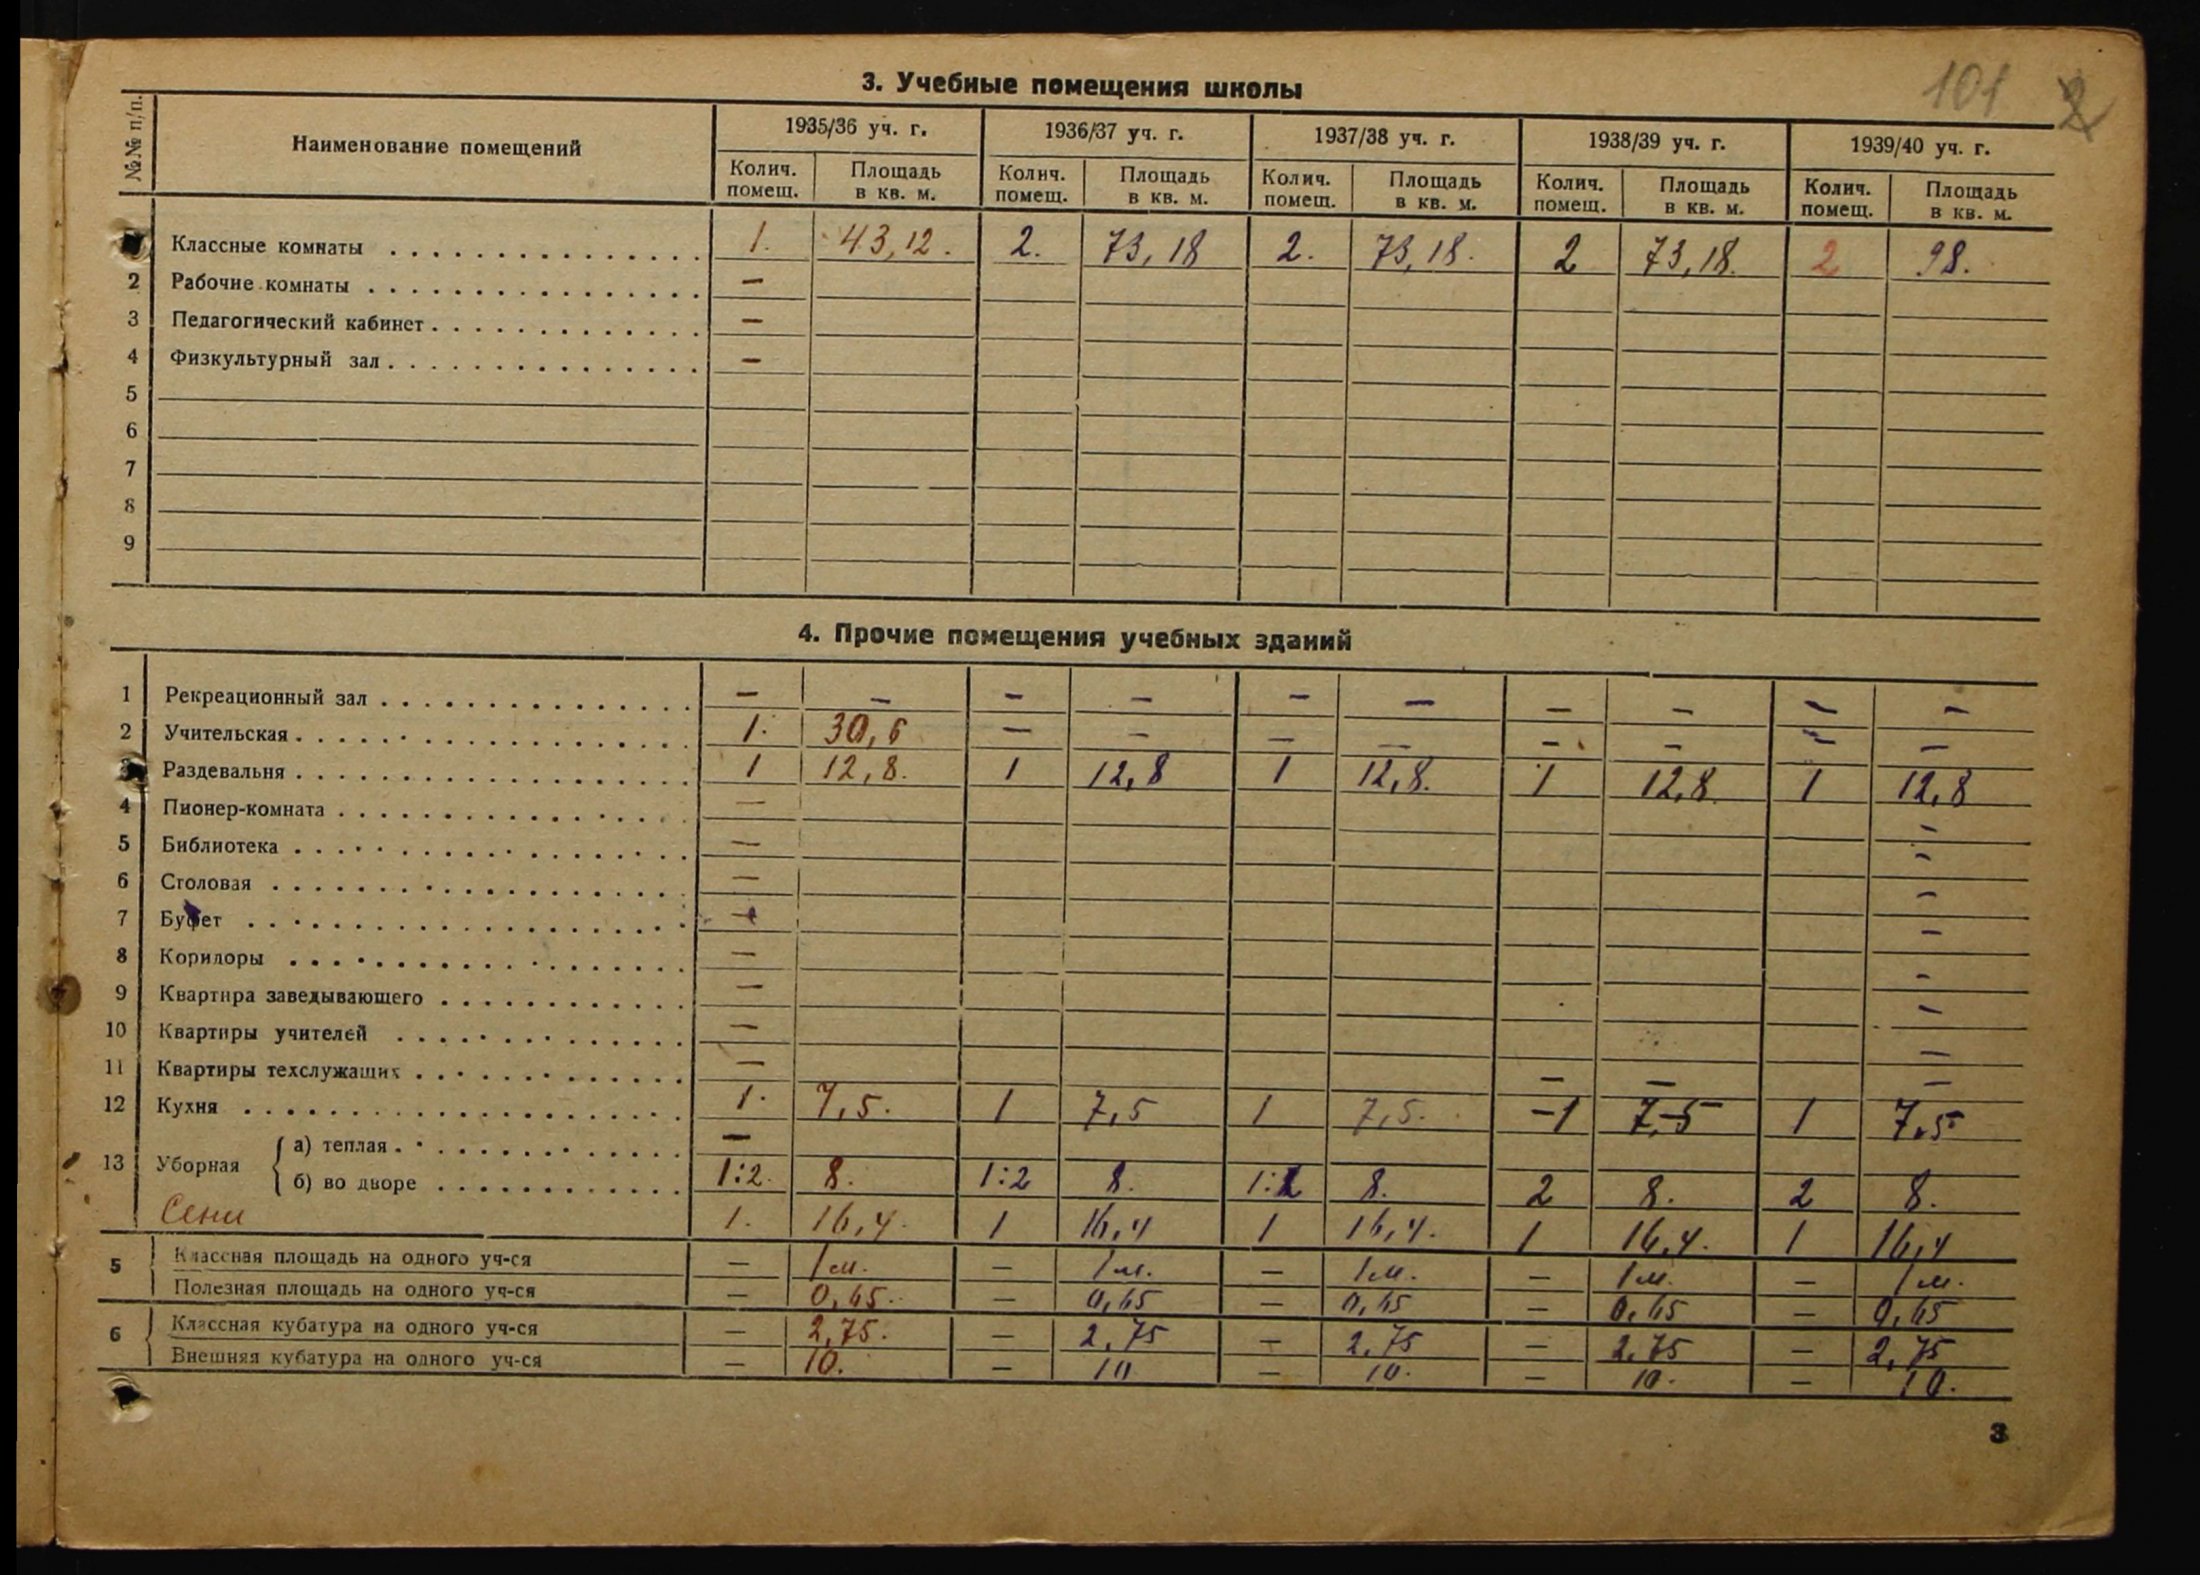 101 2
3. Учебные помещения школы
№№ п/п. Наименование помещений 1935/36 уч. г. 1936/37 уч. г. 1937/38 уч. г. 1938/39 уч. г. 1939/40 уч. г.
Колич. помещ. Площадь в кв. м. Колич. помещ. Площадь в кв. м. Колич. помещ. Площадь в кв. м. Колич. помещ. Площадь в кв. м. Колич. помещ. Площадь в кв. м.
Классные комнаты 1. 43,12. 2. 73,18 2. 73,18. 2 73,18. 2 98.
2 Рабочие комнаты —
3 Педагогический кабинет —
4 Физкультурный зал —
5
6
7
8
9
4. Прочие помещения учебных зданий
1 Рекреационный зал — — — — — — — — — —
2 Учительская 1. 30,6 — — — — — — — —
3 Раздевальня 1 12,8. 1 12,8 1 12,8. 1 12,8. 1 12,8
4 Пионер-комната — —
5 Библиотека — —
6 Столовая — —
7 Буфет — —
8 Коридоры — —
9 Квартира заведывающего — —
10 Квартиры учителей — —
11 Квартиры техслужащих — — — —
12 Кухня 1. 7,5. 1 7,5 1 7,5. —1 7,5 1 7,5
13 Уборная { а) теплая —
б) во дворе 1:2. 8. 1:2 8. 1:2 8. 2 8. 2 8.
Сени 1. 16,4. 1 16,4 1 16,4. 1 16,4. 1 16,4
5 Классная площадь на одного уч-ся — 1 м. — 1 м. — 1 м. — 1 м. — 1 м.
Полезная площадь на одного уч-ся — 0,65. — 0,65 — 0,65 — 0,65 — 0,65
6 { Классная кубатура на одного уч-ся — 2,75. — 2,75 — 2,75 — 2,75 — 2,75
Внешняя кубатура на одного уч-ся — 10. — 10 — 10. — 10. — 10.
3